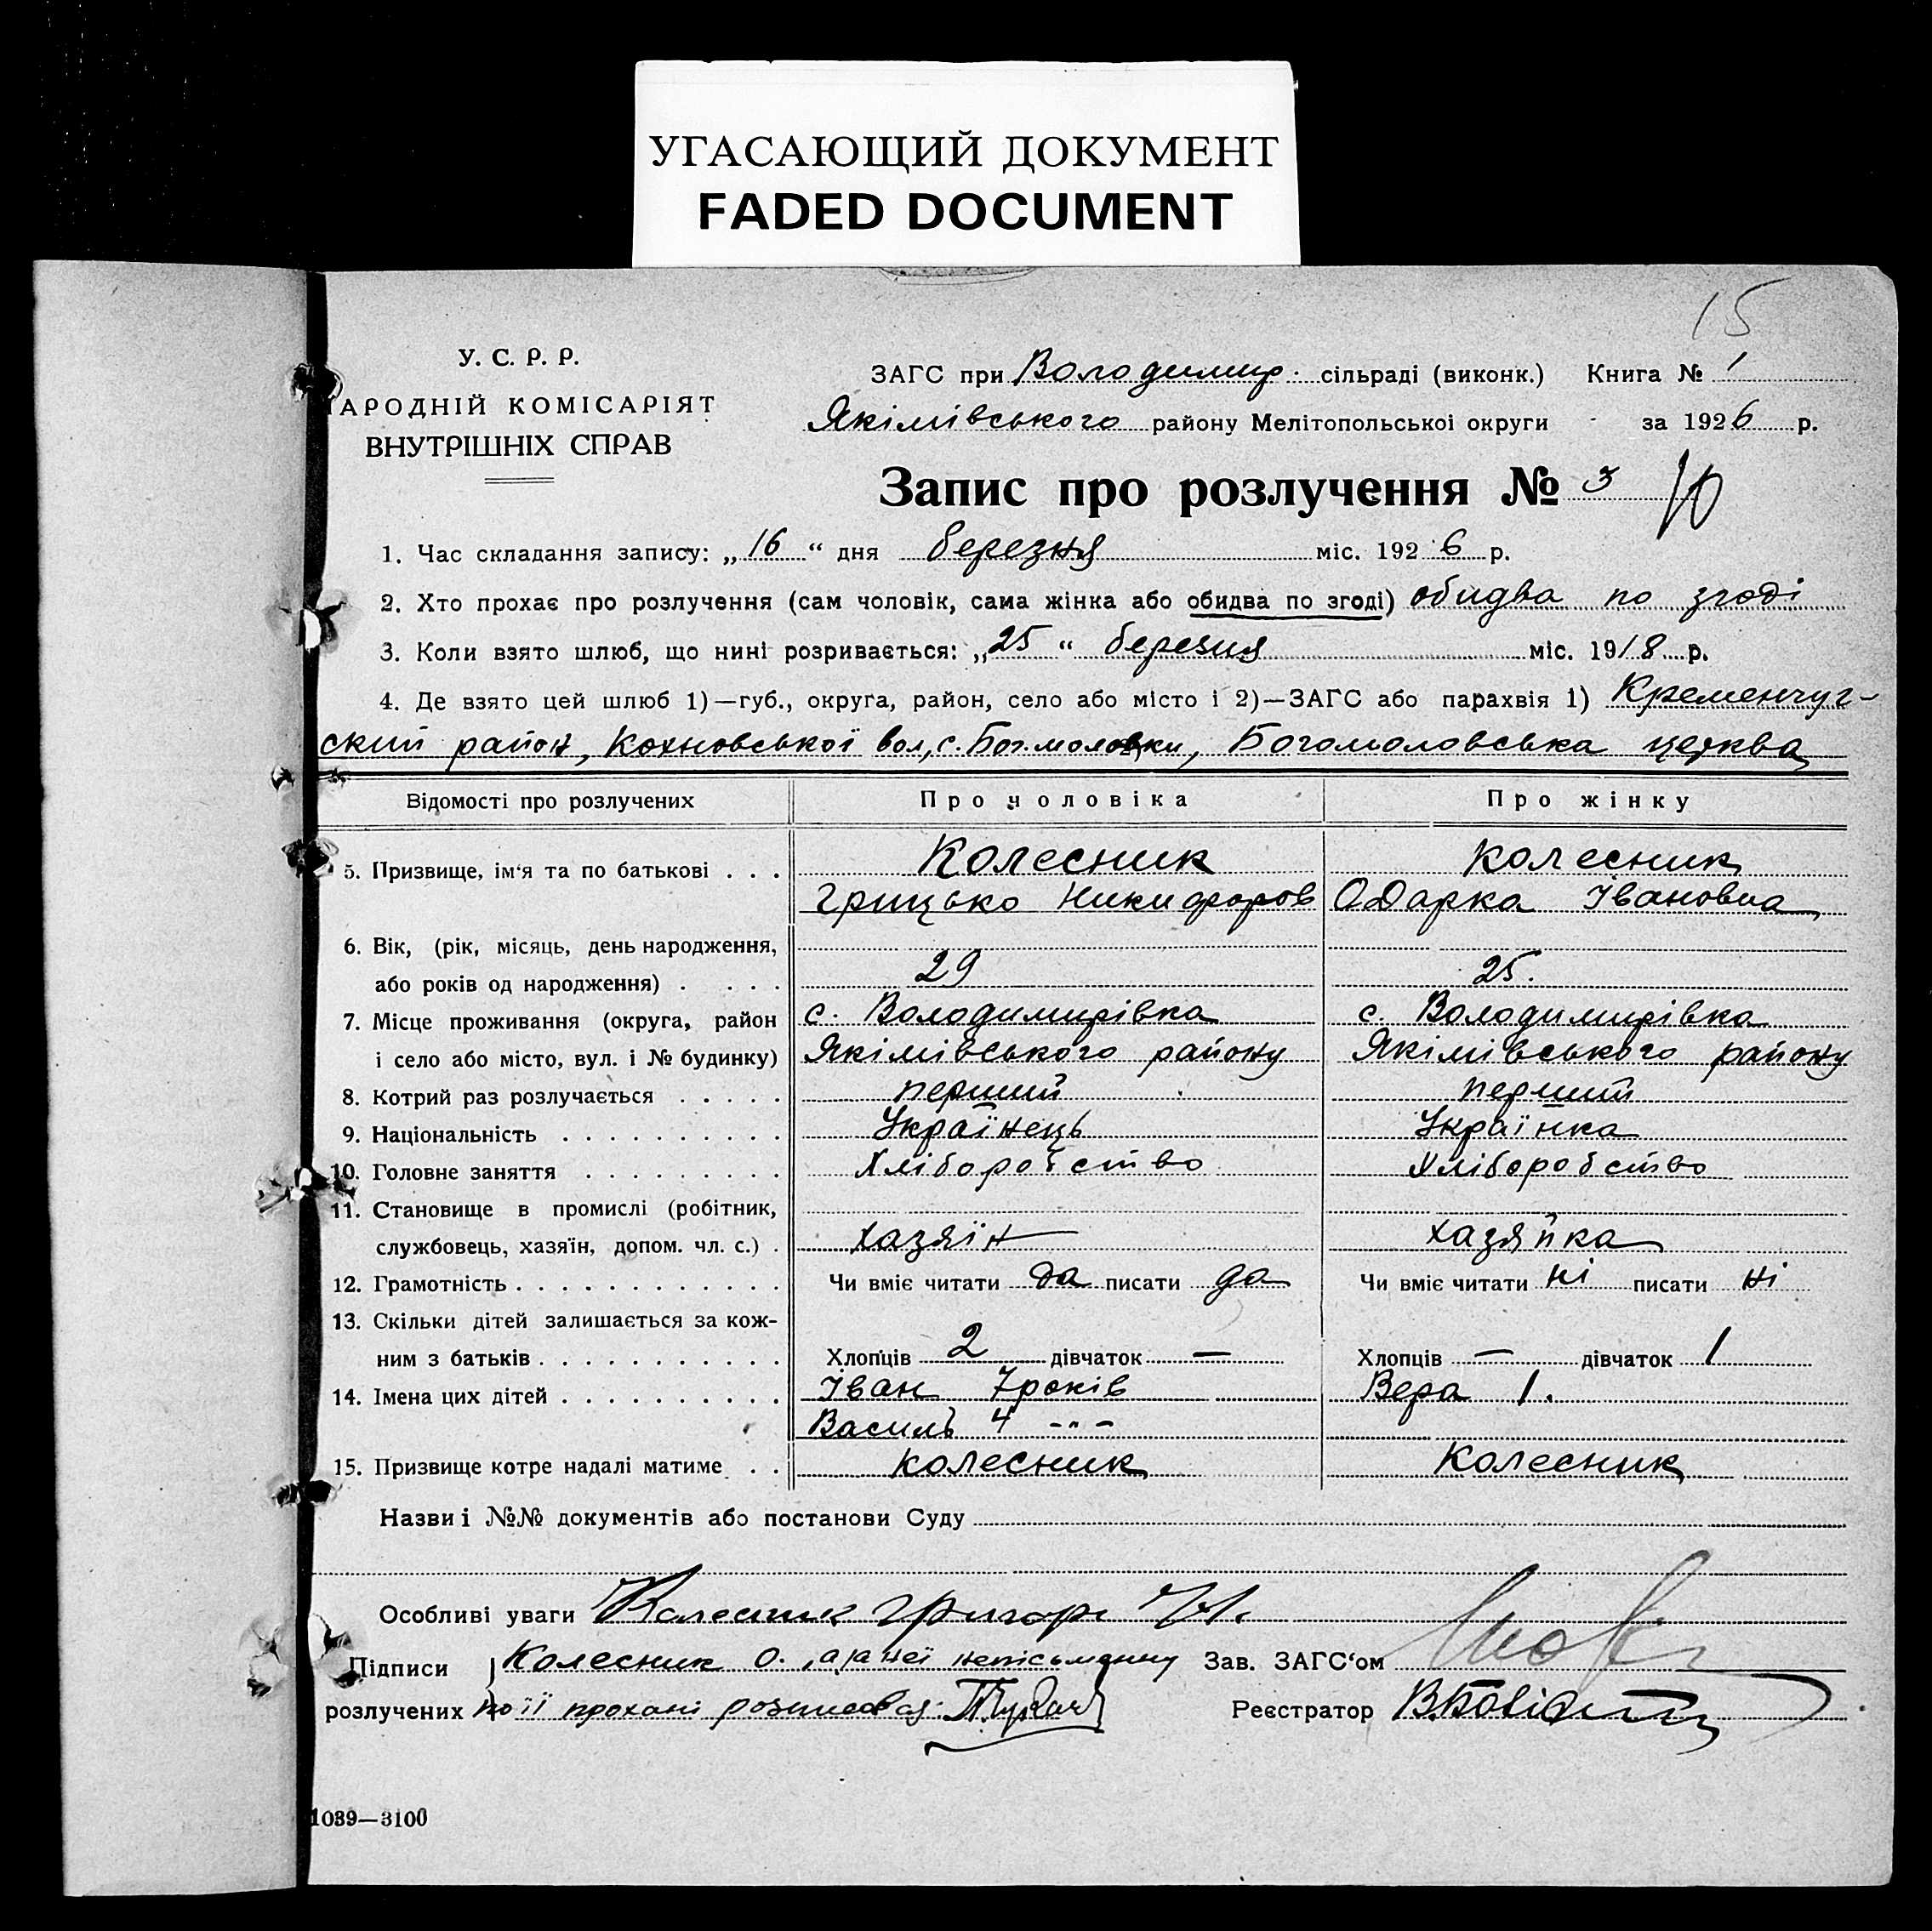 УГАСАЮЩИЙ ДОКУМЕНТ
FADED DOCUMENT
15
У. С. Р. Р.
НАРОДНІЙ КОМІСАРІЯТ
ВНУТРІШНІХ СПРАВ
ЗАГС при Володимир. сільраді (виконк.) Книга № 1
Якімівського району Мелітопольської округи за 1926 р.
Запис про розлучення № 3 10
1. Час складання запису: „16“ дня березня міс. 1926 р.
2. Хто прохає про розлучення (сам чоловік, сама жінка або обидва по згоді) обидва по згоді
3. Коли взято шлюб, що нині розривається: „25“ березня міс. 1918 р.
4. Де взято цей шлюб 1)—губ., округа, район, село або місто і 2)—ЗАГС або парахвія 1) Кременчуг-
ский район, Кохновської вол., с. Богомоловки, Богомоловська церква
Відомості про розлучених Про чоловіка Про жінку
5. Призвище, ім'я та по батькові . . . Колесник Колесник
Грицько Никифоров Одарка Івановна
6. Вік, (рік, місяць, день народження,
або років од народження) . . . . . 29 25.
7. Місце проживання (округа, район с. Володимирівка с. Володимирівка
і село або місто, вул. і № будинку) Якімівського району Якімівського району
8. Котрий раз розлучається . . . . . перший перший
9. Національність . . . . . . . . . . Українець Українка
10. Головне заняття . . . . . . . . . Хліборобство Хліборобство
11. Становище в промислі (робітник,
службовець, хазяїн, допом. чл. с.) . хазяїн хазяйка
12. Грамотність . . . . . . . . . . . . Чи вміє читати да писати да Чи вміє читати ні писати ні
13. Скільки дітей залишається за кож-
ним з батьків . . . . . . . . . . . Хлопців 2 дівчаток — Хлопців — дівчаток 1
14. Імена цих дітей . . . . . . . . . . Іван 7 років Вера 1.
Василь 4 -"-
15. Призвище котре надалі матиме . . Колесник Колесник
Назви і №№ документів або постанови Суду
Особливі уваги Колесник Григорі
Підписи Колесник О. , а за неї непісьменну Зав. ЗАГС'ом
розлучених по її прохані розписався Реєстратор
1039—3100